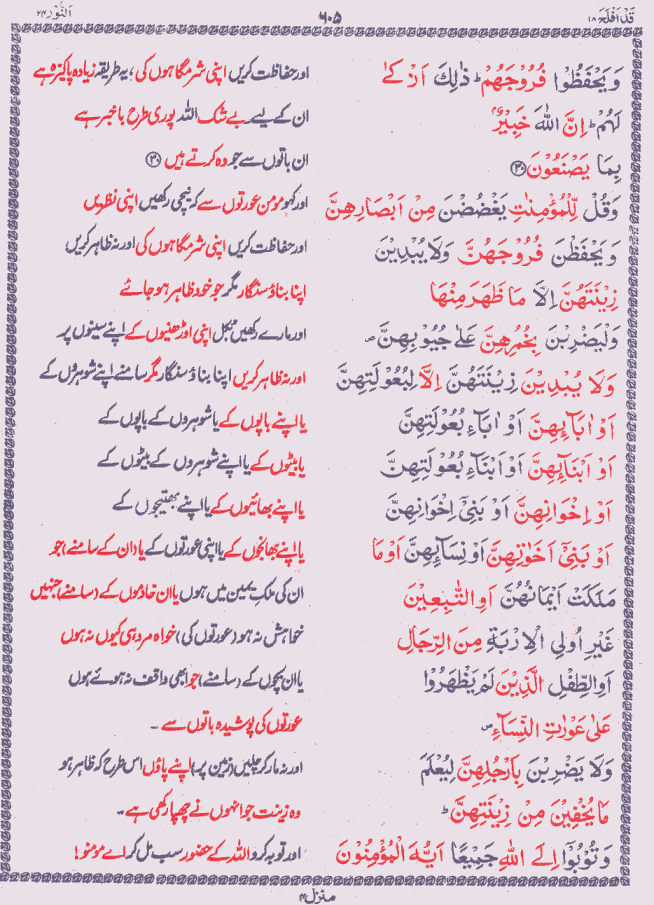 قَدْ اَفْلَحَ ١٨ ٦٠٥ اَلنُّوْر ٢٤
وَيَحْفَظُوْا فُرُوْجَهُمْ ؕ ذٰلِكَ اَزْكٰى اور حفاظت کریں اپنی شرمگاہوں کی ؛ یہ طریقہ زیادہ پاکیزہ ہے
لَهُمْ ؕ اِنَّ اللّٰهَ خَبِيْرٌۢ ان کے لیے۔ بے شک اللہ پوری طرح باخبر ہے
بِمَا يَصْنَعُوْنَ ﴿٣٠﴾ ان باتوں سے جو وہ کرتے ہیں ﴿٣٠﴾
وَقُلْ لِّلْمُؤْمِنٰتِ يَغْضُضْنَ مِنْ اَبْصَارِهِنَّ اور کہو مومن عورتوں سے کہ نیچی رکھیں اپنی نظریں
وَيَحْفَظْنَ فُرُوْجَهُنَّ وَلَا يُبْدِيْنَ اور حفاظت کریں اپنی شرمگاہوں کی اور نہ ظاہر کریں
زِيْنَتَهُنَّ اِلَّا مَا ظَهَرَ مِنْهَا اپنا بناؤ سنگار مگر جو خود ظاہر ہو جائے
وَلْيَضْرِبْنَ بِخُمُرِهِنَّ عَلٰى جُيُوْبِهِنَّ ۪ اور مارے رکھیں بُکل اپنی اوڑھنیوں کے اپنے سینوں پر
وَلَا يُبْدِيْنَ زِيْنَتَهُنَّ اِلَّا لِبُعُوْلَتِهِنَّ اور نہ ظاہر کریں اپنا بناؤ سنگار مگر سامنے اپنے شوہروں کے
اَوْ اٰبَآئِهِنَّ اَوْ اٰبَآءِ بُعُوْلَتِهِنَّ یا اپنے باپوں کے یا شوہروں کے باپوں کے
اَوْ اَبْنَآئِهِنَّ اَوْ اَبْنَآءِ بُعُوْلَتِهِنَّ یا بیٹوں کے یا اپنے شوہروں کے بیٹوں کے
اَوْ اِخْوَانِهِنَّ اَوْ بَنِيْۤ اِخْوَانِهِنَّ یا اپنے بھائیوں کے یا اپنے بھتیجوں کے
اَوْ بَنِيْۤ اَخَوٰتِهِنَّ اَوْ نِسَآئِهِنَّ اَوْ مَا یا اپنے بھانجوں کے یا اپنی عورتوں کے یا (ان کے سامنے) جو
مَلَكَتْ اَيْمَانُهُنَّ اَوِ التّٰبِعِيْنَ ان کی ملکِ یمین میں ہوں یا ان خادموں کے (سامنے) جنہیں
غَيْرِ اُولِي الْاِرْبَةِ مِنَ الرِّجَالِ خواہش نہ ہو (عورتوں کی) خواہ مرد ہی کیوں نہ ہوں
اَوِ الطِّفْلِ الَّذِيْنَ لَمْ يَظْهَرُوْا یا ان بچوں کے (سامنے) جو ابھی واقف نہ ہوئے ہوں
عَلٰى عَوْرٰتِ النِّسَآءِ ۪ عورتوں کی پوشیدہ باتوں سے ۔
وَلَا يَضْرِبْنَ بِاَرْجُلِهِنَّ لِيُعْلَمَ اور نہ مار کر چلیں (زمین پر) اپنے پاؤں اس طرح کہ ظاہر ہو
مَا يُخْفِيْنَ مِنْ زِيْنَتِهِنَّ ؕ وہ زینت جو انہوں نے چھپا رکھی ہے ۔
وَتُوْبُوْۤا اِلَى اللّٰهِ جَمِيْعًا اَيُّهَ الْمُؤْمِنُوْنَ اور توبہ کرو اللہ کے حضور سب مل کر اے مومنو !
منزل ٤